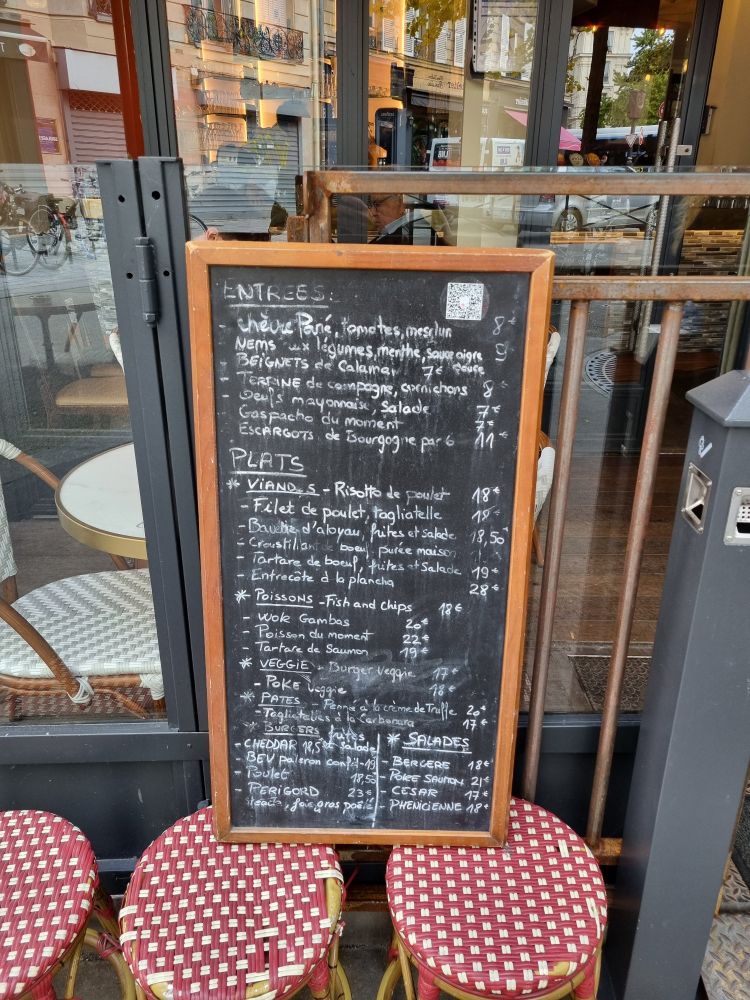 ENTREES
- Chèvre Pané, tomates, mesclun 8€
NEMS aux légumes, menthe, sauce aigre 9
BEIGNETS de Calamar 7€ sauce
- TERRINE de campagne, cornichons 8€
- Oeufs mayonnaise, salade 7€
Gaspacho du moment 7€
ESCARGOTS de Bourgogne par 6 11€
PLATS
* VIANDES - Risotto de poulet 18€
- Filet de poulet, tagliatelle 18€
- Bavette d'aloyau, frites et salade 18,50€
- Croustillant de boeuf, purée maison
- Tartare de boeuf, frites et Salade 19€
- Entrecôte à la plancha 28€
* POISSONS - Fish and chips 18€
- Wok Gambas 20€
- Poisson du moment 22€
- Tartare de Saumon 19€
* VEGGIE - Burger Veggie 17€
- POKE Veggie 18€
* PATES - Penne à la crème de Truffe 20€
- Tagliatelles à la Carbonara 17€
* BURGERS frites
- CHEDDAR 18,5 et salade
BEV paleron confit -19
- Poulet 18,50
- PERIGORD 23€
steack, foie gras poêlé
* SALADES
- BERGERE 18€
- POKE SAUMON 21€
- CESAR 17€
- PHENICIENNE 18€